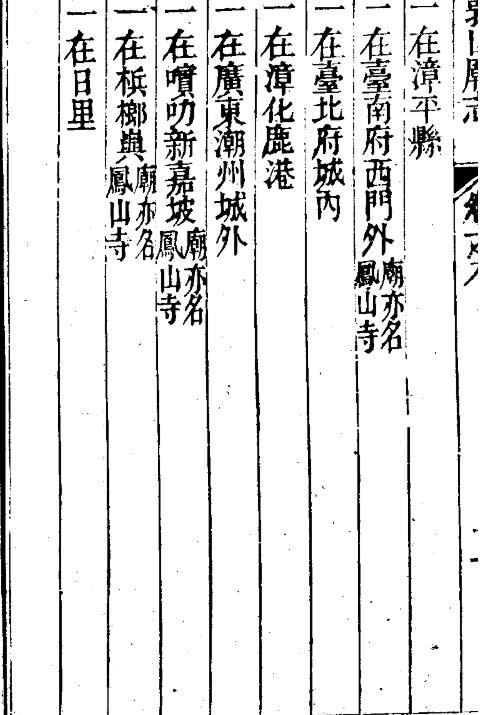 郭山廟志
一在漳平縣
一在臺南府西門外廟亦名鳳山寺
一在臺北府城內
一在漳化鹿港
一在廣東潮州城外
一在嘖叻新嘉坡廟亦名鳳山寺
一在梹榔與廟亦名鳳山寺
一在日里